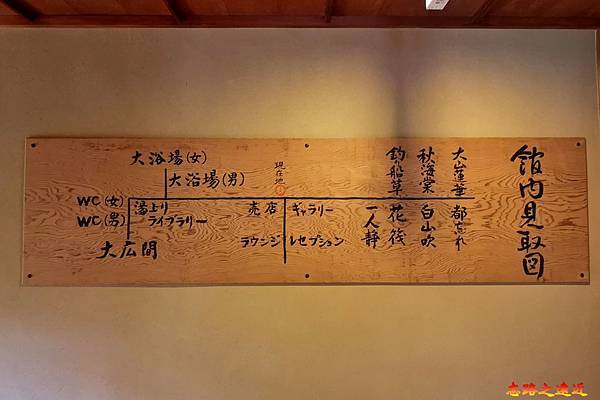 館内見取図
大山蓮華 都忘れ
秋海棠 白山吹
釣り船草 花筏
一人静
現在地
大浴場(女)
大浴場(男)
WC(女)
WC(男)
湯上り
ライブラリー
売店
ギャラリー
ラウンジ
レセプション
大広間
志路之遠近